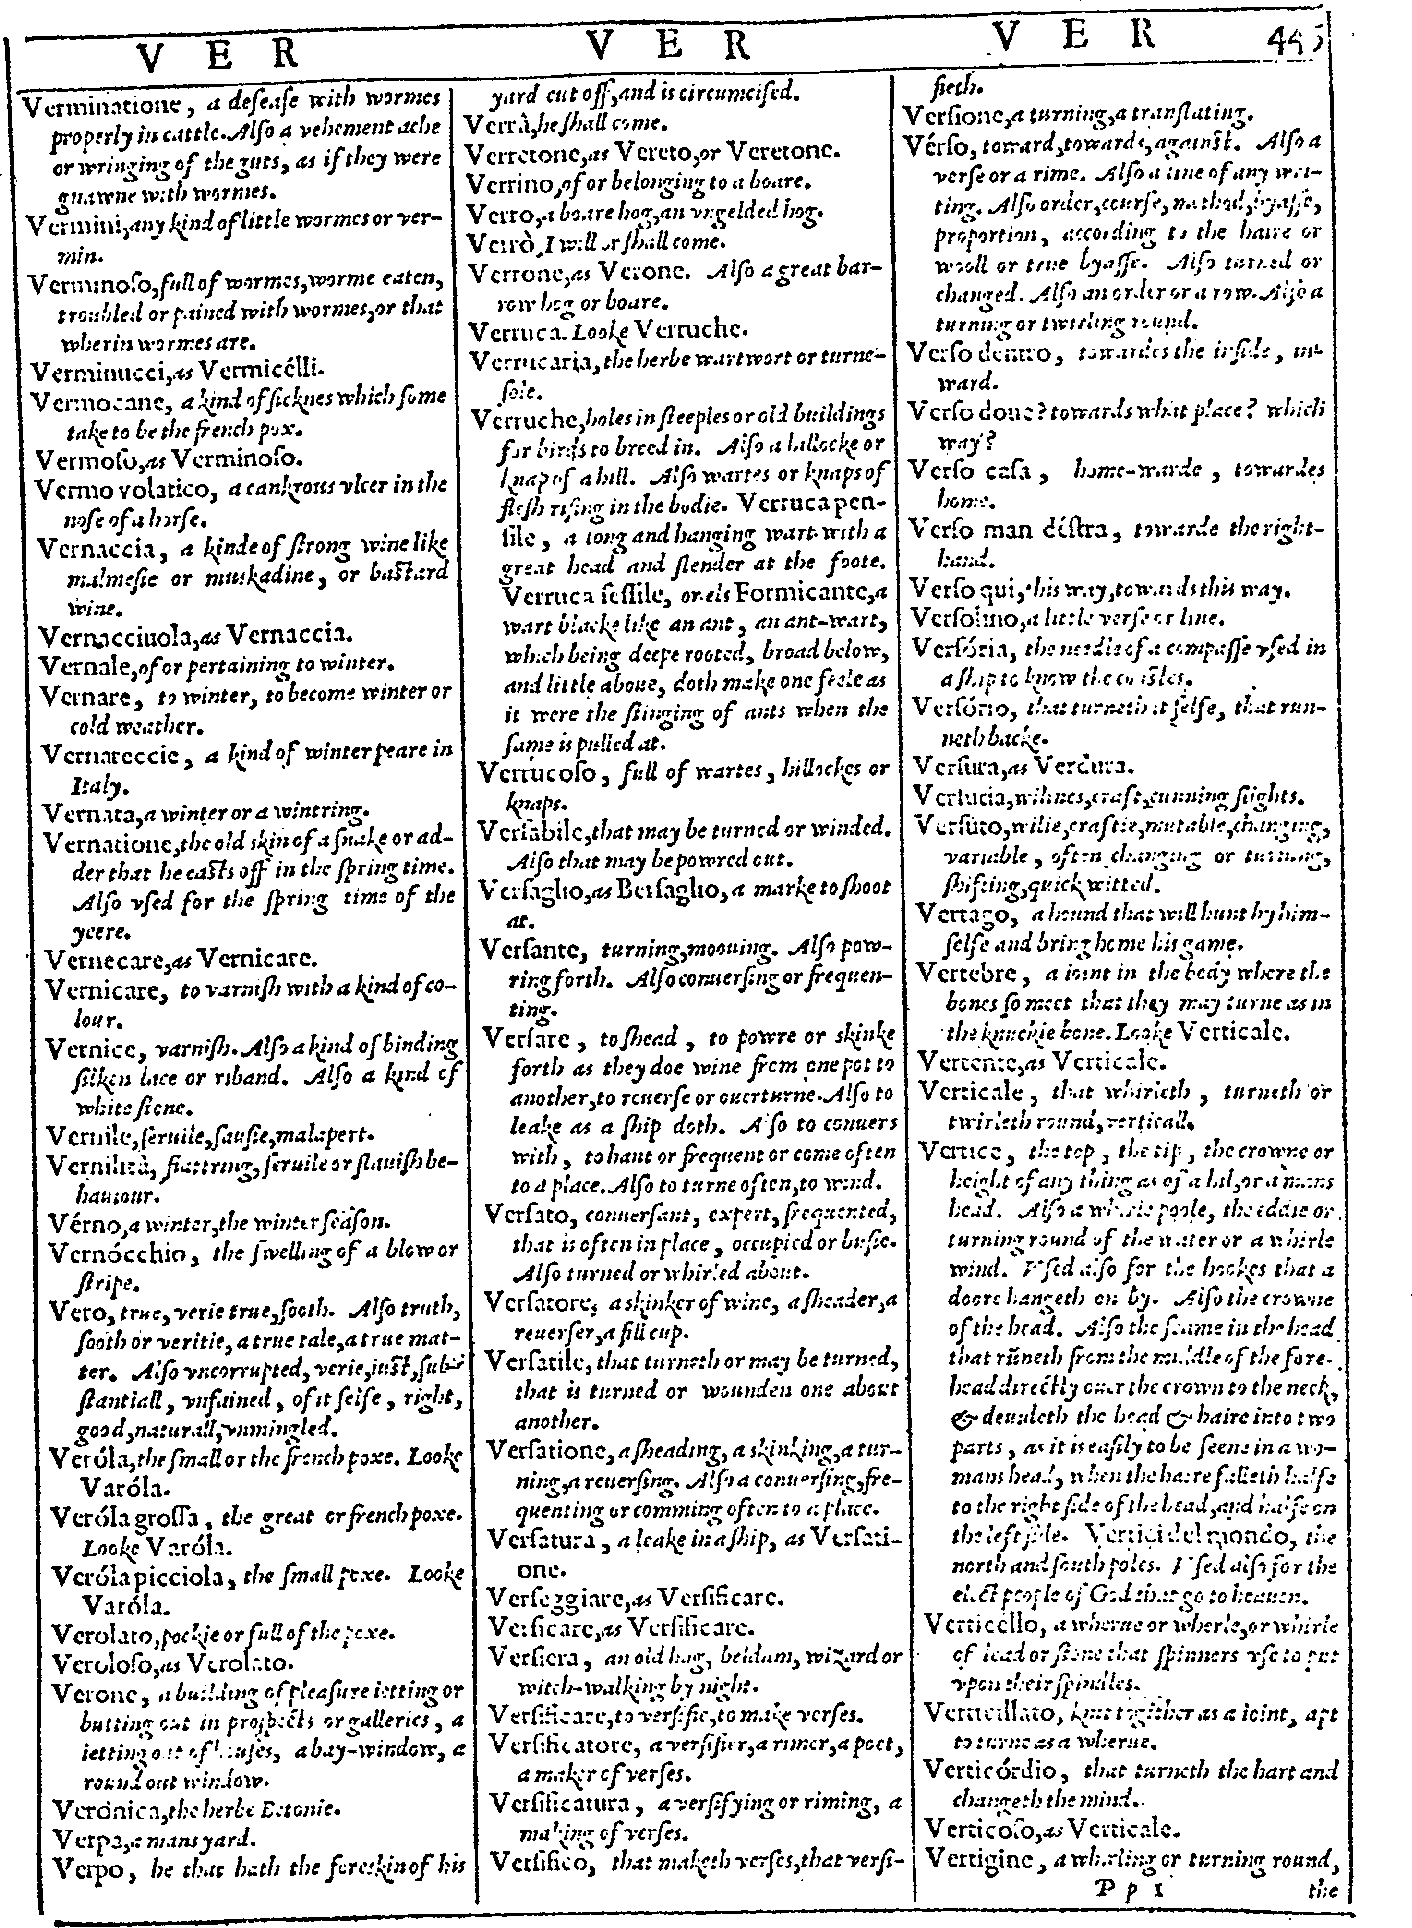 V E R
V E R
V E R
Verminatione, a deſeaſe with wormes
properly in cattle. Alſo a vehement ache
or wringing of the guts, as if they were
gnawne with wormes.
Vermini, any kind of little wormes or ver-
min.
Verminoſo, full of wormes, worme eaten,
troubled or pained with wormes, or that
wherin wormes are.
Verminucci, as Vermicélli.
Vermocane, a kind of ſicknes which ſome
take to be the french pox.
Vermoſo, as Verminoſo.
Vermo volatico, a cankrous vlcer in the
noſe of a horſe.
Vernaccia, a kinde of ſtrong wine like
malmeſie or muskadine, or baſtard
wine.
Vernacciuola, as Vernaccia.
Vernale, of or pertaining to winter.
Vernare, to winter, to become winter or
cold weather.
Vernareccie, a kind of winter peare in
Italy.
Vernata, a winter or a wintring.
Vernatione, the old skin of a ſnake or ad-
der that he caſts off in the ſpring time.
Alſo vſed for the ſpring time of the
yeere.
Vernecare, as Vernicare.
Vernicare, to varniſh with a kind of co-
lour.
Vernice, varniſh. Alſo a kind of binding
ſilken lace or riband. Alſo a kind of
white ſtone.
Vernile, ſeruile, ſauſie, malapert.
Vernilità, flattring, ſeruile or ſlauiſh be-
hauiour.
Vérno, a winter, the winter ſeaſon.
Vernócchio, the ſwelling of a blow or
ſtripe.
Vero, true, verie true, ſooth. Alſo truth,
ſooth or veritie, a true tale, a true mat-
ter. Alſo vncorrupted, verie, iuſt, ſub-
ſtantiall, vnfained, of it ſelfe, right,
good, naturall, vnmingled.
Veróla, the ſmall or the french poxe. Looke
Varóla.
Veróla groſſa, the great or french poxe.
Looke Varóla.
Veróla picciola, the ſmall poxe. Looke
Varóla.
Verolato, pockie or full of the poxe.
Veroloſo, as Verolato.
Verone, a building of pleaſure ietting or
butting out in proſpects or galleries, a
ietting out of houſes, a bay-window, a
round out window.
Verónica, the herbe Betonie.
Verpa, a mans yard.
Verpo, he that hath the foreskin of his
yard cut off, and is circumciſed.
Verrà, he ſhall come.
Verretone, as Vereto, or Veretone.
Verrino, of or belonging to a boare.
Verro, a boare hog, an vngelded hog.
Verrò, I will or ſhall come.
Verrone, as Verone. Alſo a great bar-
row hog or boare.
Verruca. Looke Verruche.
Verrucaria, the herbe wartwort or turne-
ſole.
Verruche, holes in ſteeples or old buildings
for birds to breed in. Alſo a hillocke or
knap of a hill. Alſo wartes or knaps of
fleſh riſing in the bodie. Verruca pen-
ſile, a long and hanging wart with a
great head and ſlender at the foote.
Verruca ſeſſile, or els Formicante, a
wart blacke like an ant, an ant-wart,
which being deepe rooted, broad below,
and little aboue, doth make one feele as
it were the ſtinging of ants when the
ſame is pulled at.
Verrucoſo, full of wartes, hillockes or
knaps.
Verſabile, that may be turned or winded.
Alſo that may be powred out.
Verſaglio, as Berſaglio, a marke to ſhoot
at.
Verſante, turning, moouing. Alſo pow-
ring forth. Alſo conuerſing or frequen-
ting.
Verſare, to ſhead, to powre or skinke
forth as they doe wine from one pot to
another, to reuerſe or ouerturne. Alſo to
leake as a ſhip doth. Alſo to conuers
with, to hant or frequent or come often
to a place. Alſo to turne often, to wind.
Verſato, conuerſant, expert, frequented,
that is often in place, occupied or buſie.
Alſo turned or whirled about.
Verſatore, a skinker of wine, a ſheader, a
reuerſer, a fill cup.
Verſatile, that turneth or may be turned,
that is turned or wounden one about
another.
Verſatione, a ſheading, a skinking, a tur-
ning, a reuerſing. Alſo a conuerſing, fre-
quenting or comming often to a place.
Verſatura, a leake in a ſhip, as Verſati-
one.
Verſeggiare, as Verſificare.
Verſicare, as Verſificare.
Verſiera, an old hag, beldam, wizard or
witch-walking by night.
Verſificare, to verſifie, to make verſes.
Verſificatore, a verſifier, a rimer, a poet,
a maker of verſes.
Verſificatura, a verſifying or riming, a
making of verſes.
Verſifico, that maketh verſes, that verſi-
fieth.
Verſione, a turning, a tranſlating.
Vérſo, toward, towards, againſt. Alſo a
verſe or a rime. Alſo a line of any wri-
ting. Alſo order, courſe, method, byaſſe,
proportion, according to the haire or
wooll or true byaſſe. Alſo turned or
changed. Alſo an order or a row. Alſo a
turning or twirling round.
Verſo dentro, towardes the inſide, in-
ward.
Verſo doue? towards what place? which
way?
Verſo caſa, home-warde, towardes
home.
Verſo man déſtra, towarde the right-
hand.
Verſo qui, this way, towards this way.
Verſolino, a little verſe or line.
Verſória, the needle of a compaſſe vſed in
a ſhip to know the coaſtes.
Verſório, that turneth it ſelfe, that run-
neth backe.
Verſura, as Verdura.
Verſucia, wilines, craft, cunning ſlights.
Verſuto, wilie, craftie, mutable, changing,
variable, often changing or turning,
ſhifting, quick witted.
Vertago, a hound that will hunt by him-
ſelfe and bring home his game.
Vertebre, a ioint in the body where the
bones ſo meet that they may turne as in
the knuckle bone. Looke Verticale.
Vertente, as Verticale.
Verticale, that whirleth, turneth or
twirleth round, verticall.
Vertice, the top, the tip, the crowne or
height of any thing as of a hil, or a mans
head. Alſo a whirle poole, the eddie or
turning round of the water or a whirle
wind. Vſed alſo for the hookes that a
doore hangeth on by. Alſo the crowne
of the head. Alſo the ſeame in the head
that rūneth from the middle of the fore-
head directly ouer the crown to the neck,
& deuideth the head & haire into two
parts, as it is eaſily to be ſeene in a wo-
mans head, when the haire falleth halfe
to the right ſide of the head, and halfe on
the left ſide. Vertici del mondo, the
north and ſouth poles. Vſed alſo for the
elect people of God that go to heauen.
Verticéllo, a wherne or wherle, or whirle
of lead or ſtone that ſpinners vſe to put
vpon their ſpindles.
Verticillato, knit togither as a ioint, apt
to turne as a wherne.
Verticórdio, that turneth the hart and
changeth the mind.
Verticoſo, as Verticale.
Vertigine, a whirling or turning round,
P p 1
the